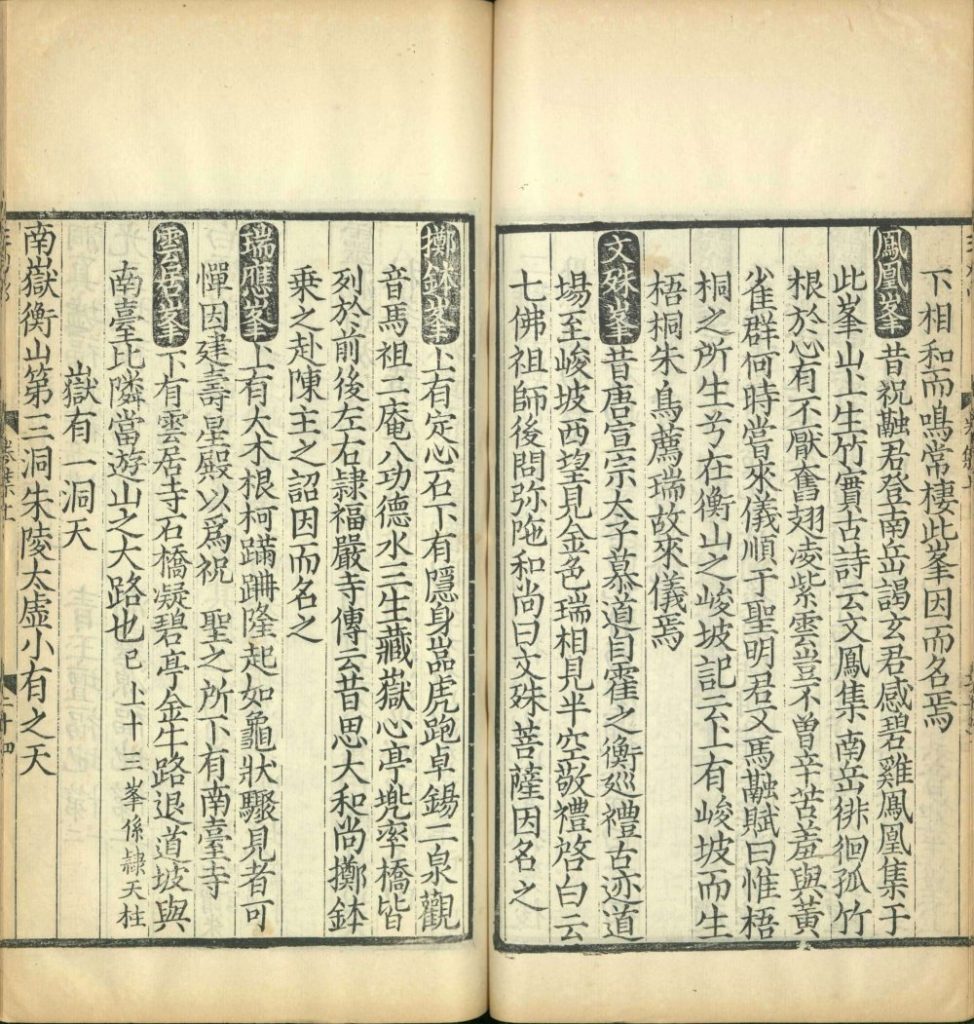 下相和而鳴常棲此峯因而名焉
鳳凰峯昔祝融君登南岳謁玄君感碧雞鳳凰集于
此峯山上生竹實古詩云文鳳集南岳徘徊孤竹
根於心有不厭奮翅凌紫雲豈不曽辛苦羞與黃
雀群何時當來儀順于聖明君又馬融賦曰惟梧
桐之所生兮在衡山之峻坡記云上有峻坡而生
梧桐朱鳥薦瑞故來儀焉
文殊峯昔唐宣宗太子慕道自霍之衡廵禮古迹道
場至峻坡西望見金色瑞相見半空敬禮啓白云
七佛祖師後問弥陁和尚曰文殊菩薩因名之
擲鉢峯上有定心石下有隱身嵓虎跑卓錫二泉觀
音馬祖二庵八功德水三生藏嶽心亭兠率橋皆
列於前後左右隷福嚴寺傳云昔思大和尚擲鉢
乗之赴陳主之詔因而名之
瑞應峯上有大木根柯蹣跚隆起如龜狀驟見者可
憚因建壽星殿以爲祝 聖之所下有南臺寺
雲居峯下有雲居寺石橋凝碧亭金牛路退道坡與
南臺比隣當遊山之大路也已上十三峯係隷天柱
嶽有一洞天
南嶽衡山第三洞朱陵太虛小有之天